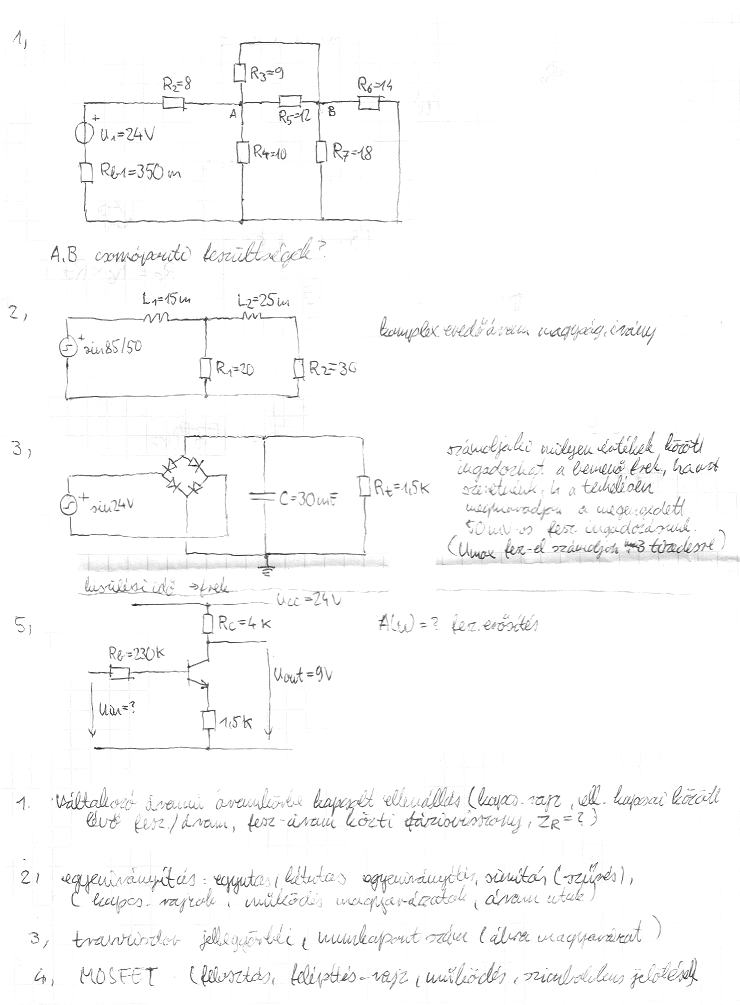 1,
R2=8
R3=9
R6=14
A
R5=12
B
+
U1=24V
R4=10
R7=18
Rb1=350m
A.B csomóponti feszültségek?
2,
L1=15m
L2=25m
+
sin85/50
R1=20
R2=30
komplex eredő áram nagyság, irány
3,
+
sin24V
C=30mF
Rt=1,5K
számolja ki milyen értékek között
ingadozhat a bemenő frek, ha azt
szeretnénk, h a terhelésen
megmaradjon a megengedett
50mV-os fesz ingadozásunk.
(Umax fesz-el számoljon 3 tizedesre)
kisülési idő → frek
5,
Ucc=24V
Rc=4K
A(u)=? fesz. erősítés
Rb=230K
Uout=9V
Uin=?
1,5K
1. Váltakozó áramú áramkörbe kapcsolt ellenállás (kapcs. rajz, ell. kapcsai között
lévő fesz/áram, fesz-áram közti fázisviszony, ZR=?)
2, egyenirányítás: egyutas, kétutas egyenirányítás, simítás (szűrés),
(kapcs. rajzok, működés magyarázatok, áram utak)
3, tranzisztor jelleggörbéi, munkapont (ábra magyarázat)
4, MOSFET (felosztás, felépítés-rajz, működés, szimbolikus jelölések